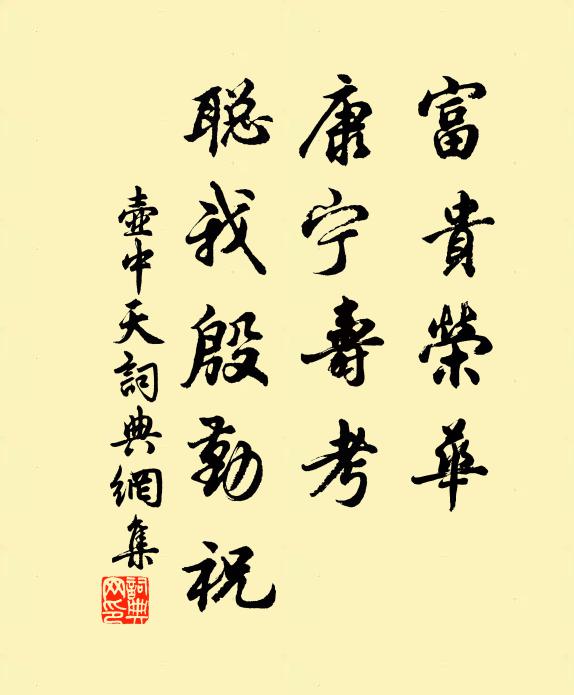 富貴榮華
康宁壽考
聪我殷勤祝
壺中天詞典網集
詞典
网印